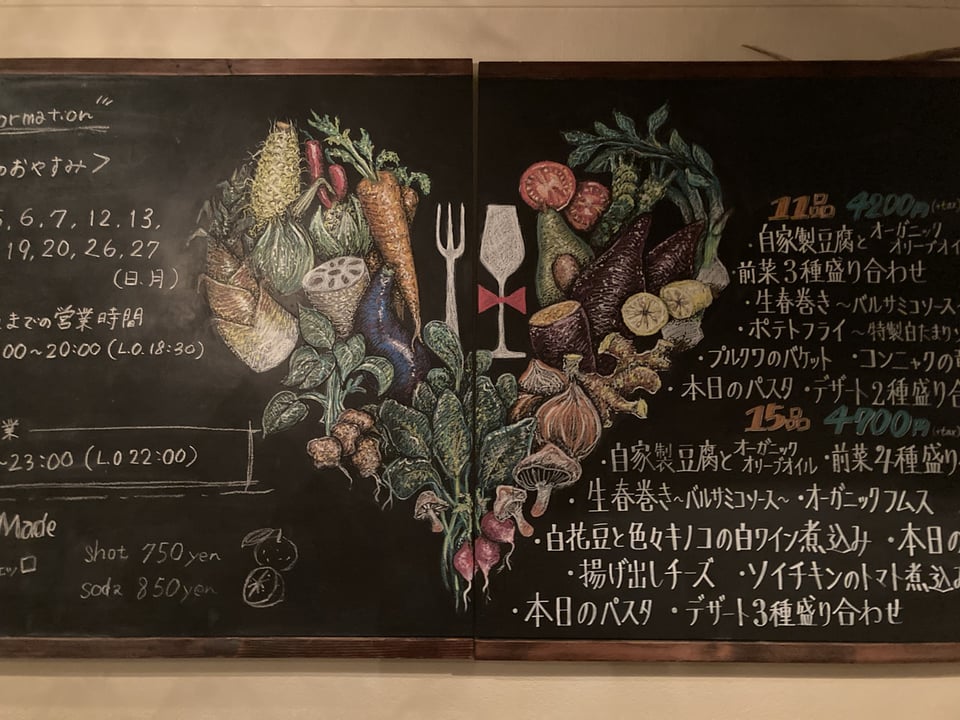 ormation"
のおやすみ>
6, 7, 12, 13,
19, 20, 26, 27
(日.月)
までの営業時間
00~20:00 (L.O.18:30)
業
~23:00 (L.O 22:00)
Made
shot 750 yen
soda 850 yen
11品 4200円(+tax)
・自家製豆腐とオーガニックオリーブオイ
・前菜3種盛り合わせ
・生春巻き~バルサミコソース~
・ポテトフライ~特製白たまり
・プルクワのバケット ・コンニャクの
・本日のパスタ ・デザート2種盛り合
15品 4700円(+tax)
・自家製豆腐とオーガニックオリーブオイル ・前菜4種盛り
・生春巻き~バルサミコソース~ ・オーガニックフムス
・白花豆と色々キノコの白ワイン煮込み ・本日の
・揚げ出しチーズ ・ソイチキンのトマト煮込み
・本日のパスタ ・デザート3種盛り合わせ